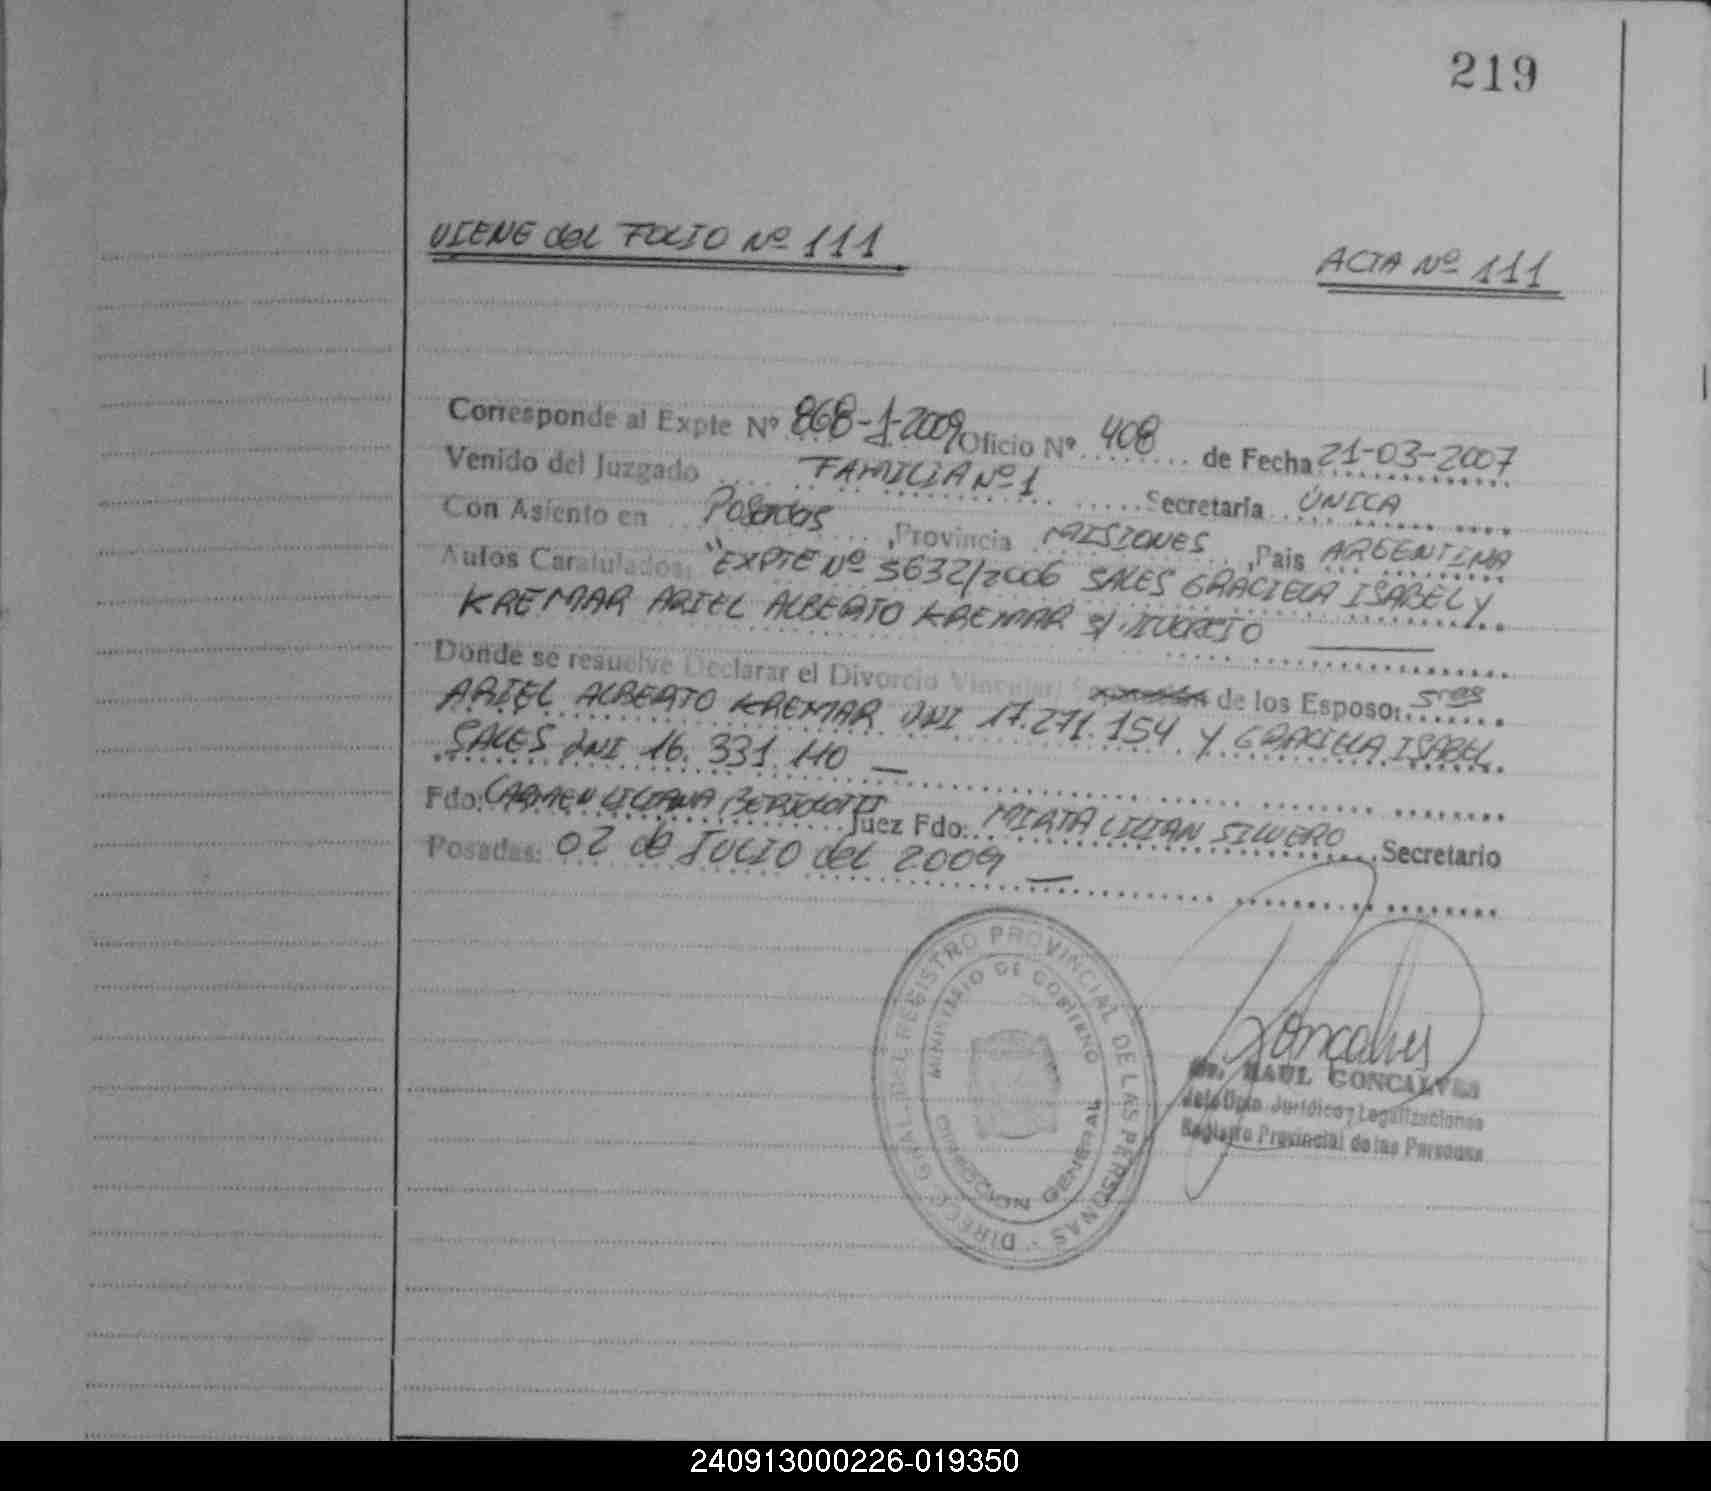 219
VIENE del FOLIO Nº 111
ACTA Nº 111
Corresponde al Expte Nº 868-J-2009 Oficio Nº 408 de Fecha 21-03-2007
Venido del Juzgado FAMILIA Nº 1 Secretaria ÚNICA
Con Asiento en Posadas, Provincia MISIONES, Pais ARGENTINA
Autos Caratulados: "EXPTE Nº 5632/2006 SALES GRACIELA ISABEL Y
KREMAR ARIEL ALBERTO KREMAR S/
Donde se resuelve Declarar el Divorcio Vincular de los Esposos Sres
ARIEL ALBERTO KREMAR DNI 17.271.154 Y GRACIELA ISABEL
SALES DNI 16.331.110
Fdo: CARMEN LILIANA BERTOLOTTI Juez Fdo: MIRTA LILIAN SILVERO Secretario
Posadas: 02 de JULIO del 2009
DIRECC. GRAL. DEL REGISTRO PROVINCIAL DE LAS PERSONAS
MINISTERIO DE GOBIERNO
DIRECCION GENERAL
Goncalves
Dr. RAUL GONCALVES
Jefe Dpto. Jurídico y Legalizaciones
Registro Provincial de las Personas
240913000226-019350